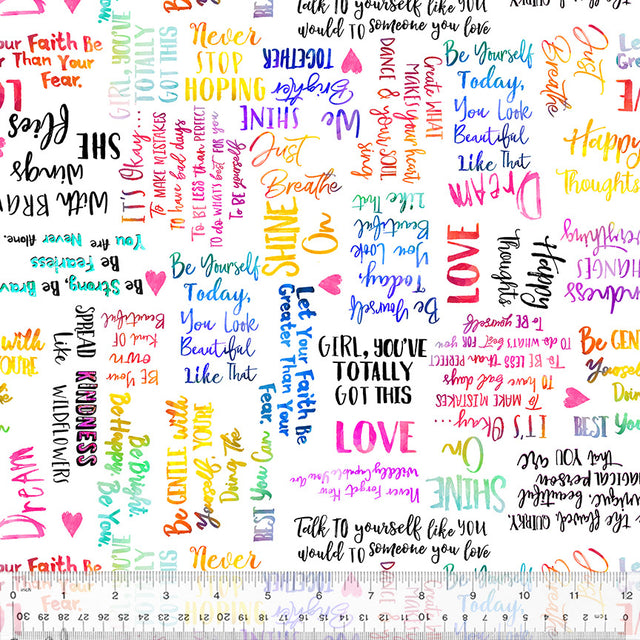 Talk TO yourself like YOU
would TO someone you love
our Faith Be
r Than Your
Fear.
GIRL, YOU'VE
TOTALLY
GOT THIS
Never
STOP
HOPING
TOGETHER
Brighter
SHINE
We
Create WHAT
MAKES your heart
sing
DANCE & your SOUL
Be Yourself
Today,
You Look
Beautiful
Like That
Just
Breathe
Happy
Thoughts
SHE
flies
wings
With BRA
IT'S Okay...
TO MAKE MISTAKES
TO have bad days
TO BE LESS than PERFECT
TO do WHAT'S BEST FOR YOU
TO BE yourself
Just
Breathe
SHINE
On
DREAM
LOVE
Happy
Thoughts
You Are Never Alone.
Be Fearless
Be Strong, Be Brave
Be Yourself
Today,
You Look
Beautiful
Like That
Be Yourself
Today,
You Look
Beautiful
Like That
everything
CHANGES
Kindness
SPREAD
KINDNESS
Like
WILDFLOWERS
BE Your
own
Kind OF
Beautiful
Let Your Faith Be
Greater Than Your
Fear.
GIRL, YOU'VE
TOTALLY
GOT THIS
LOVE
IT'S Okay...
TO MAKE MISTAKES
TO have bad days
TO BE LESS than PERFECT
TO do WHAT'S BEST FOR YOU
TO BE yourself
Be GENTLE
Yourself
Doing
BEST YOU
with
YOU'RE
DREAM
Be Bright.
Be Happy.
Be You.
Be GENTLE with
Yourself, YOU'RE
Doing The
BEST You Can
Never Forget How
Wildly Capable You Are
SHINE
On
the flawed, QUIRKY,
unique, beautiful
MAGICAL person
that YOU are
Talk TO yourself like YOU
would TO someone you love
our Faith Be
r Than Your
Fear.
GIRL, YOU'VE
TOTALLY
GOT THIS
Never
STOP
HOPING
Be Yourself
Today,
0 inch 1 2 3 4 5 6 7 8 9 10 11 12
30 29 28 27 26 25 24 23 22 21 20 19 18 17 16 15 14 13 12 11 10 9 8 7 6 5 4 3 2 1cm 0